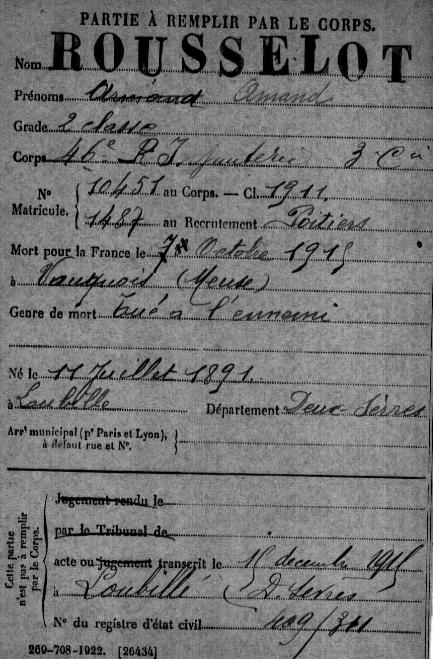 PARTIE À REMPLIR PAR LE CORPS.
Nom ROUSSELOT
Prénoms Armand Amand
Grade 2 classe
Corps 46e R. Infanterie 3 Cie
N° Matricule. { 10451 au Corps. — Cl. 1911.
1487 au Recrutement Poitiers
Mort pour la France le 7 Octobre 1915
à Vauquois (Meuse)
Genre de mort Tué à l'ennemi
Né le 11 Juillet 1891.
à Loubillé Département Deux-Sèvres
Arrt municipal (pr Paris et Lyon), à défaut rue et N°. }
Cette partie n'est pas à remplir par le Corps.
Jugement rendu le
par le Tribunal de
acte ou jugement transcrit le 15 decembre 1915
à Loubillé (D. Sevres
N° du registre d'état civil
269-708-1922. [26434]